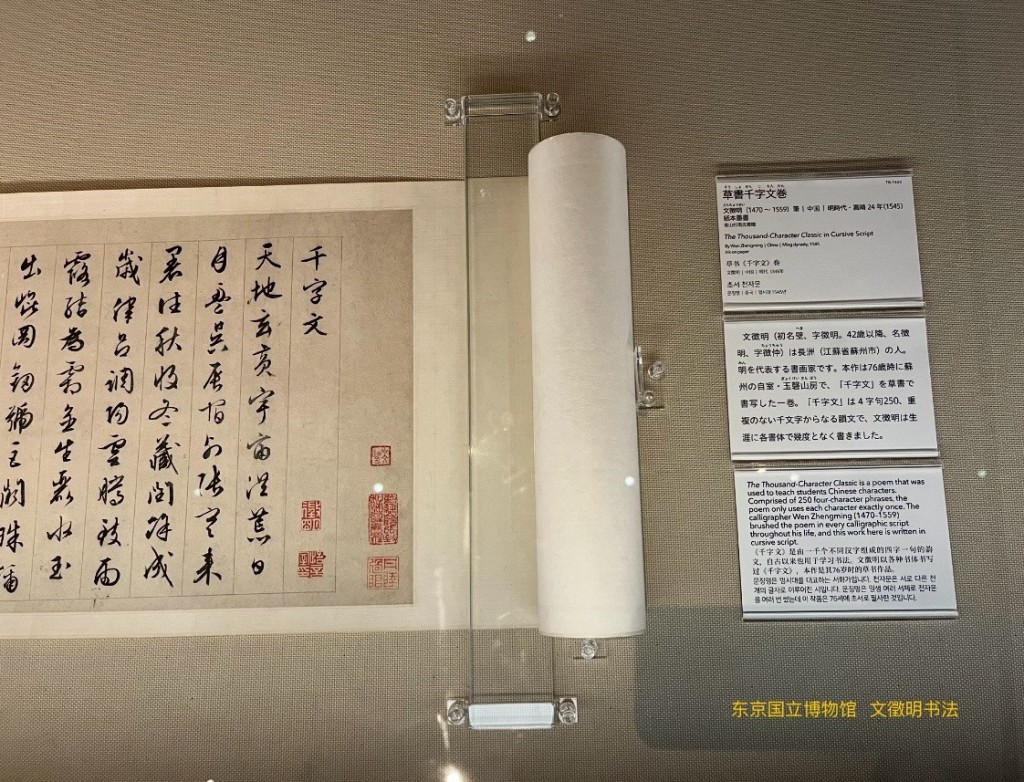 千字文
天地玄黄宇宙洪荒日
月盈昃辰宿列張寒来
暑往秋收冬藏閏餘成
歲律吕調陽雲騰致雨
露結為霜金生麗水玉
出崐岡劔號巨闕珠稱
草書千字文巻
文徴明(1470～1559)筆|中国|明時代・嘉靖24年(1545)
紙本墨書
The Thousand-Character Classic in Cursive Script
By Wen Zhengming | China | Ming dynasty, 1545
Ink on paper
草书《千字文》卷
文徵明 | 中国 | 明代, 1545年
초서 천자문
문징명 | 중국 | 명시대 1545년
文徴明（初名壁、字徴明。42歳以降、名徴
明、字徴仲）は長洲（江蘇省蘇州市）の人。
明を代表する書画家です。本作は76歳時に蘇
州の自室・玉磬山房で、「千字文」を草書で
書写した一巻。「千字文」は4字句250、重
複のない千文字からなる韻文で、文徴明は生
涯に各書体で幾度となく書きました。
The Thousand-Character Classic is a poem that was
used to teach students Chinese characters.
Comprised of 250 four-character phrases, the
poem only uses each character exactly once. The
calligrapher Wen Zhengming (1470-1559)
brushed the poem in every calligraphic script
throughout his life, and this work here is written in
cursive script.
《千字文》是由一千个不同汉字组成的四字一句的韵
文，自古以来也用于学习书法。文徵明以各种书体书写
过《千字文》，本作是其76岁时的草书作品。
문징명은 명시대를 대표하는 서화가입니다. 천자문은 서로 다른 천
개의 글자로 이루어진 시입니다. 문징명은 평생 여러 서체로 천자문
을 여러 번 썼는데 이 작품은 76세에 초서로 필사한 것입니다.
东京国立博物馆 文徵明书法